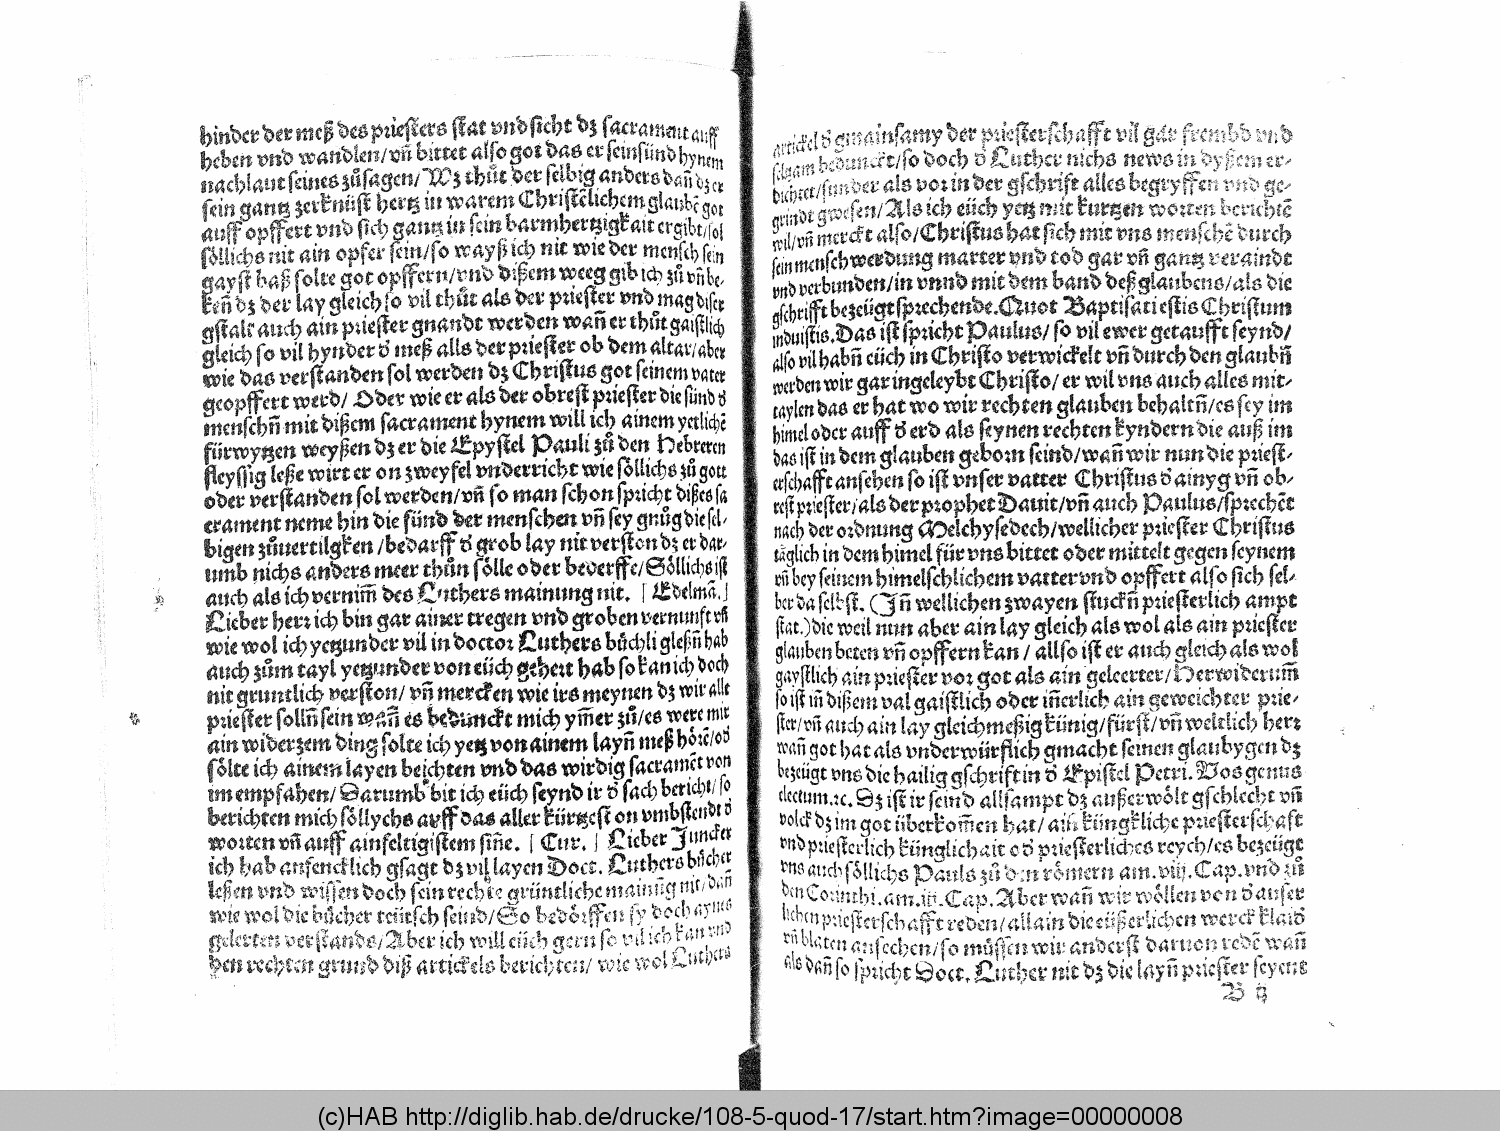 hinder der meß des priesters stat vnd sicht dz sacrament auff
heben vnd wandlen/vñ bittet also got das er sein sünd hynem
nachlaut seines zůsagen/Wz thůt der selbig anders dañ dz er
sein gantz zerknüst hertz in warem Christēlichem glaubē got
auff opffert vnd sich gantz in sein barmhertzigkait ergibt/sol
söllichs nit ain opfer sein/so wayß ich nit wie der mensch sein
gayst baß solte got opffern/vnd dißem weeg gib ich zů vñ be-
keñ dz der lay gleich so vil thůt als der priester vnd mag diser
gstalt auch ain priester gnandt werden wañ er thůt gaistlich
gleich so vil hynder d̄ meß alls der priester ob dem altar/aber
wie das verstanden sol werden dz Christus got seinem vater
geopffert werd/ Oder wie er als der obrest priester die sünd d̄
menschñ mit dißem sacrament hynem will ich ainem yetlichē
fürwytzen weyßen dz er die Epystel Pauli zů den Hebreren
fleyssig leße wirt er on zweyfel vnderricht wie söllichs zů gott
oder verstanden sol werden/vñ so man schon spricht dißes sa
crament neme hin die sünd der menschen vñ sey gnůg die sel-
bigen zůuertilgken/bedarff d̄ grob lay nit verston dz er dar-
umb nichs anders meer thůn sölle oder bederffe/Söllichs ist
auch als ich vernim̄ des Luthers mainung nit. [ Edelmā.]
Lieber herr ich bin gar ainer tregen vnd groben vernunft vñ
wie wol ich yetzunder vil in doctor Luthers büchli gleßñ hab
auch zům tayl yetzunder von eüch gehert hab so kan ich doch
nit gruntlich verston/ vñ mercken wie irs meynen dz wir alle
priester solln̄ sein wañ es bedunckt mich ym̄er zů/es were mir
ain widerzem ding solte ich yetz von ainem layñ meß hörē/od̄
sölte ich ainem layen beichten vnd das wirdig sacramēt von
im empfahen/ Darumb bit ich eüch seynd ir d̄ sach bericht/so
berichten mich söllychs auff das aller kürtzest on vmbstendt d̄
worten vñ auff ainfeltigistem siñe. [ Cur. ] Lieber Juncker
ich hab anfencklich gsagt dz vil layen Doct. Luthers bücher
leßen vnd wissen doch sein rechte grüntliche mainūg nit/dañ
wie wol die bücher teütsch seind/So bedörffen sy doch aynes
gelerten verstands/Aber ich will eüch gern so vil ich kan vnd
den rechten grund diß artickels berichten/ wie wol Luthers
artickel d̄ gmainsamy der priesterschafft vil gar frembd vnd
selzam bedunckt/so doch d̄ Luther nichs news in dyßem er-
dichtet/sunder als vor in der gschrift alles begryffen vnd ge-
gründt gwesen/Als ich eüch yetz mit kurtzen worten berichtē
wil/vñ merckt also/Christus hat sich mit vns menschē durch
sein menschwerdung marter vnd tod gar vñ gantz veraindt
vnd verbunden/in vnnd mit dem band deß glaubens/als die
gschrifft bezeügt sprechende. Quot Baptisati estis Christum
induistis. Das ist spricht Paulus/ so vil ewer getaufft seynd/
also vil habñ eüch in Christo verwickelt vñ durch den glaubñ
werden wir gar ingeleybt Christo/ er wil vns auch alles mit-
taylen das er hat wo wir rechten glauben behaltñ/es sey im
himel oder auff d̄ erd als seynen rechten kyndern die auß im
das ist in dem glauben geborn seind/wañ wir nun die priest-
erschafft ansehen so ist vnser vatter Christus d̄ ainyg vñ ob-
rest priester/als der prophet Dauit/vñ auch Paulus/sprechēt
nach der ordnung Melchysedech/wellicher priester Christus
täglich in dem himel für vns bittet oder mittelt gegen seynem
vñ bey seinem himelschlichem vatter vnd opffert also sich sel-
ber da selbst. (Iñ wellichen zwayen stuckñ priesterlich ampt
stat.) die weil nun aber ain lay gleich als wol als ain priester
glauben beten vñ opffern kan / allso ist er auch gleich als wol
gaystlich ain priester vor got als ain geleerter/Herwiderum̄
so ist iñ dißem val gaistlich oder iñerlich ain geweichter prie-
ster/vñ auch ain lay gleichmeßig künig/fürst/vñ weltlich herr
wañ got hat als vnderwürflich gmacht seinen glaubygen dz
bezeügt vns die hailig gschrift in d̄ Epistel Petri. Vos genus
electum.⁊c. Dz ist ir seind allsampt dz außerwölt gschlecht vñ
volck dz im got überkom̄en hat/ ain küngkliche priesterschaft
vnd priesterlich künglichait od̄ priesterliches reych/es bezeügt
vns auch söllichs Pauls zů den römern am.viij. Cap.vnd zů
den Corinthi.am.iij.Cap. Aber wañ wir wöllen von d̄ auser
lichen priesterschafft reden/allain die eüßerlichen werck klaid̄
vñ blaten ansechen/so müssen wir anderst daruon redē wañ
als dañ so spricht Doct. Luther nit dz die layñ priester seyent
B ij
(c)HAB http://diglib.hab.de/drucke/108-5-quod-17/start.htm?image=00000008